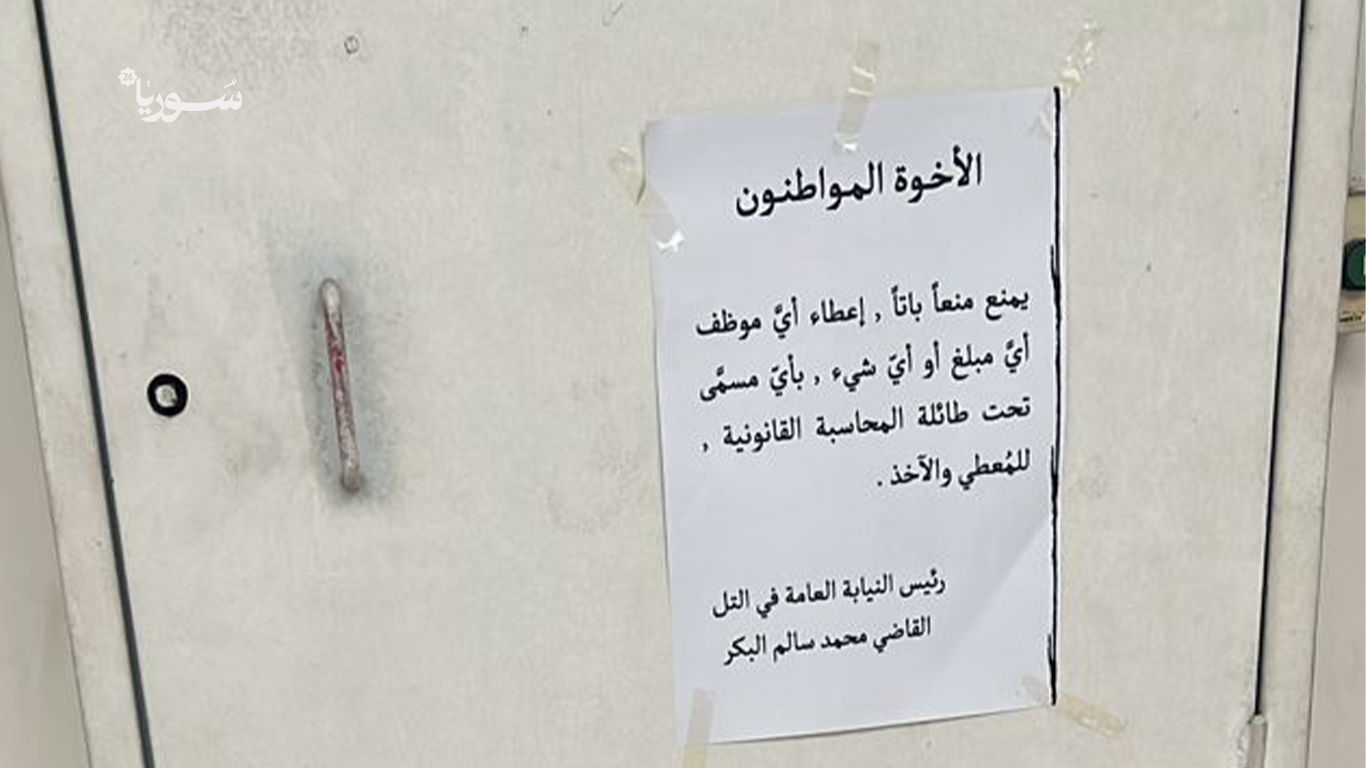 سوريا 24
الأخوة المواطنون
يمنع منعاً باتاً , إعطاء أيَّ موظف
أيَّ مبلغ أو أيّ شيء , بأيّ مسمَّى
تحت طائلة المحاسبة القانونية ,
للمُعطي والآخذ .
رئيس النيابة العامة في التل
القاضي محمد سالم البكر